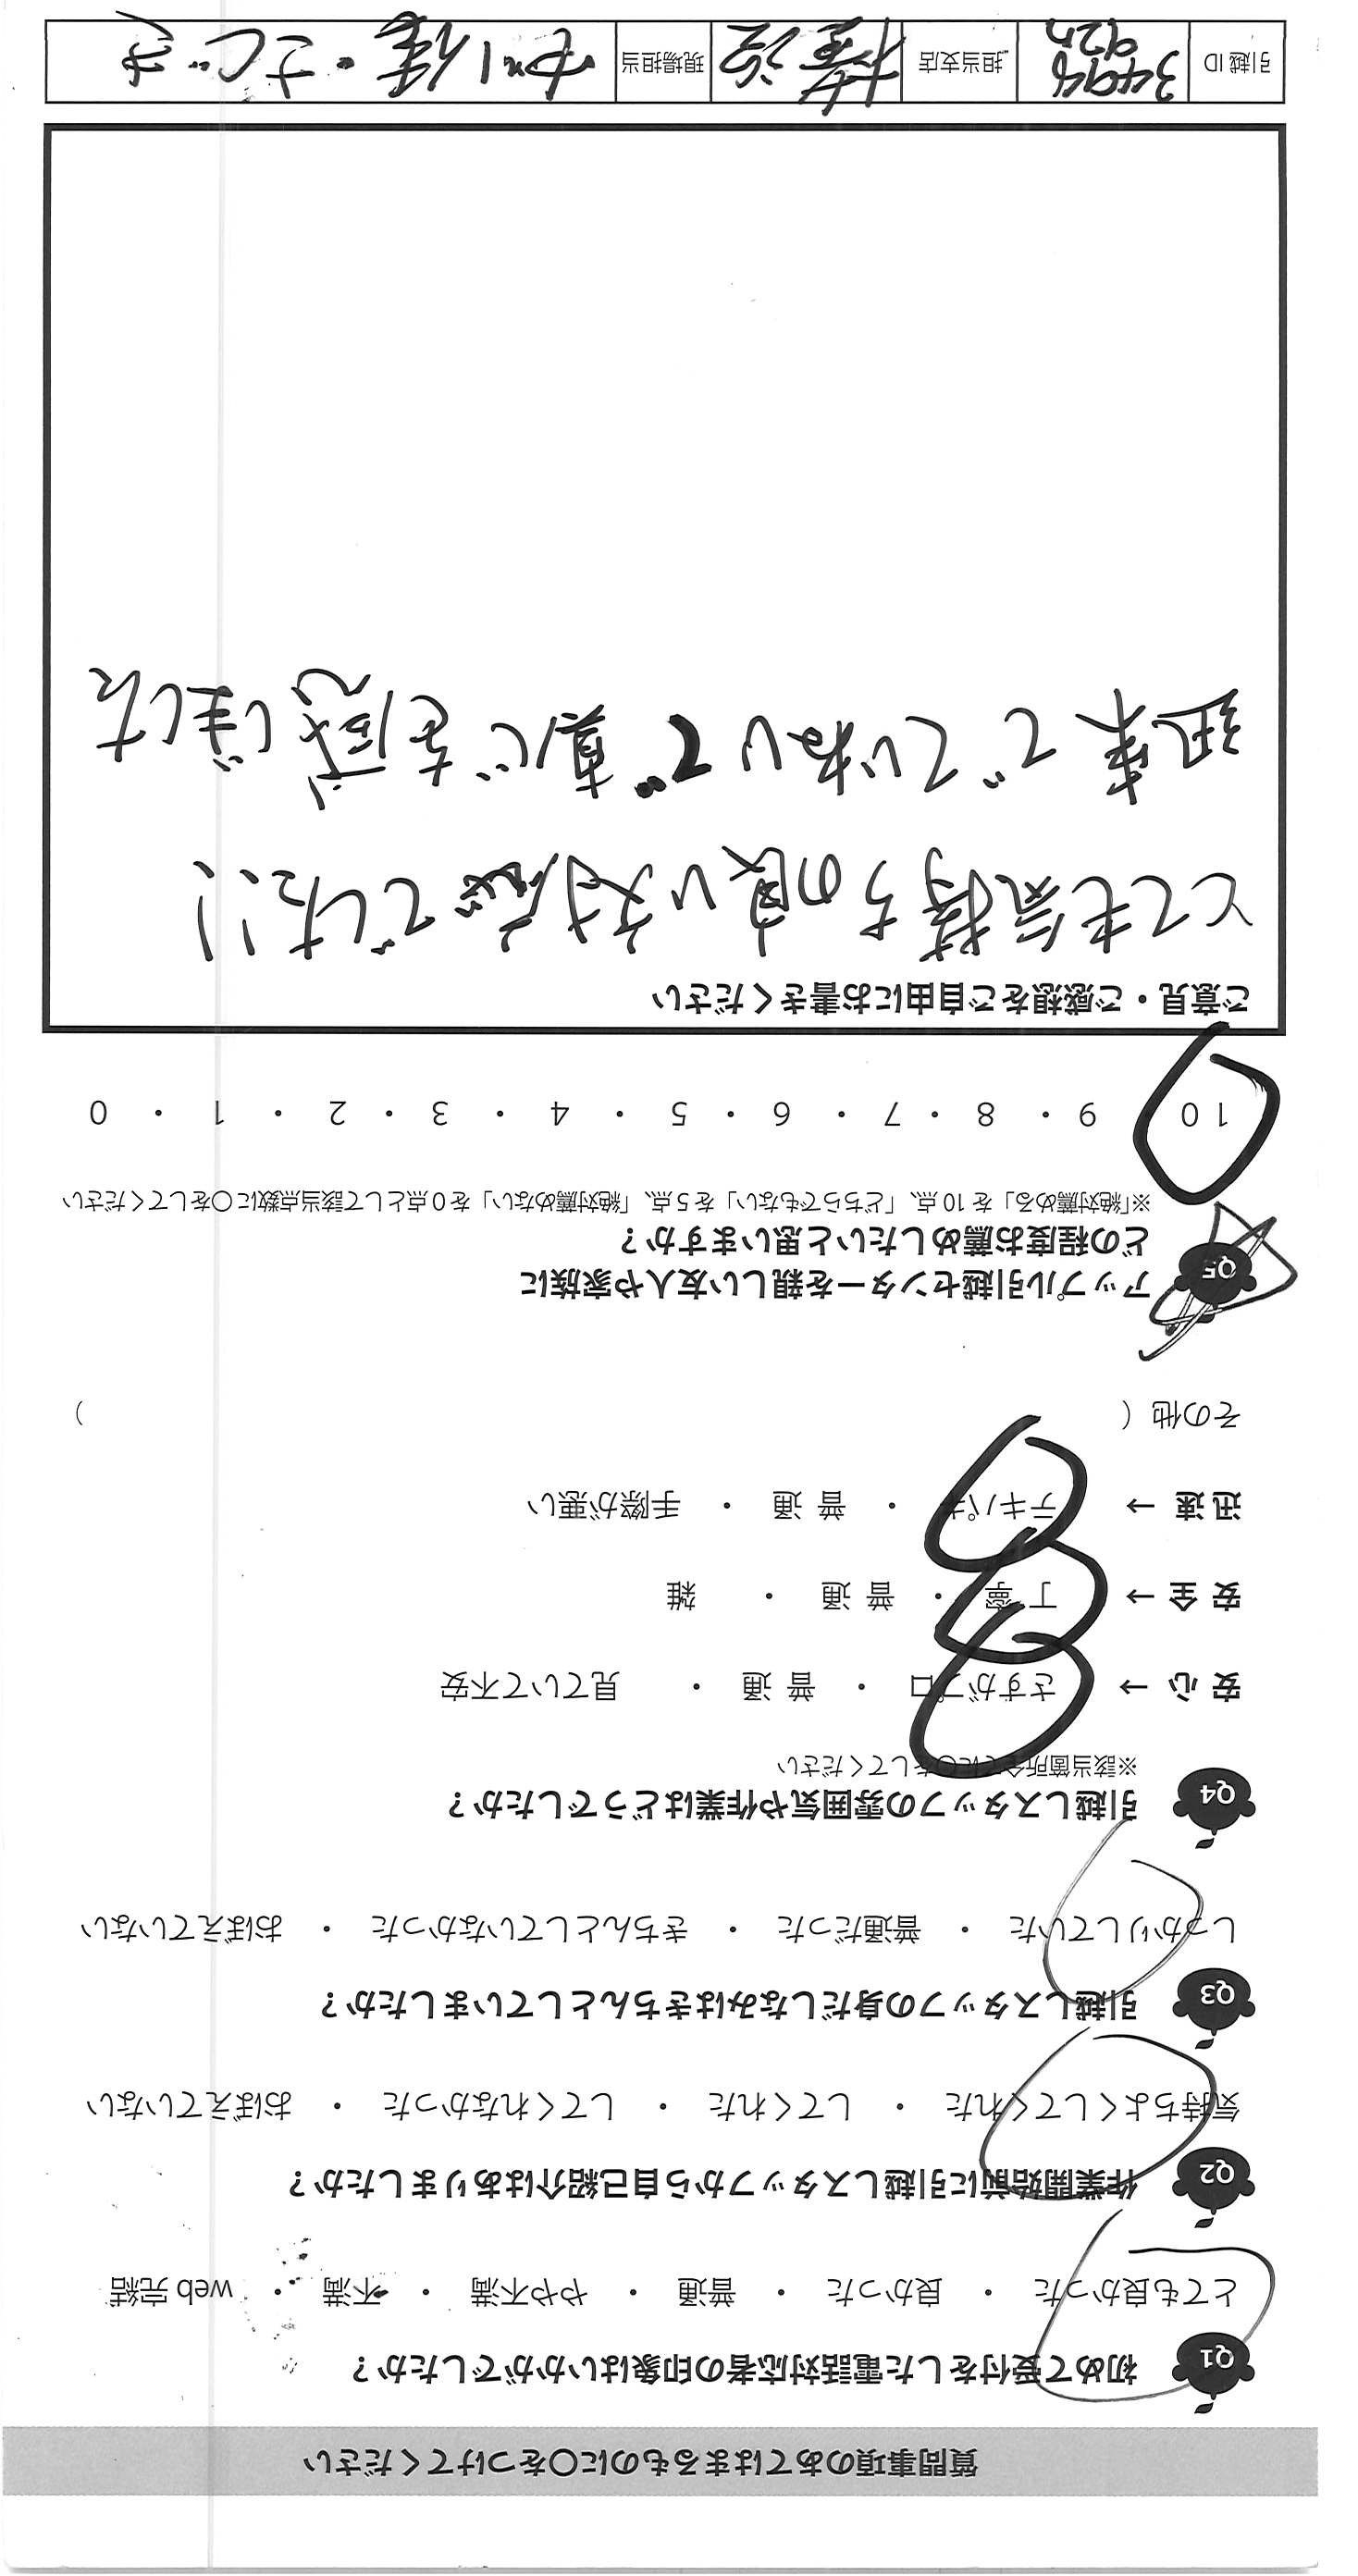 質問事項のあてはまるものに〇をつけてください
Q1 初めて受付をした電話対応者の印象はいかがでしたか？
とても良かった ・ 良かった ・ 普通 ・ やや不満 ・ 不満 ・ web 完結
Q2 作業開始前に引越しスタッフから自己紹介はありましたか？
気持ちよくしてくれた ・ してくれた ・ してくれなかった ・ おぼえていない
Q3 引越しスタッフの身だしなみはきちんとしていましたか？
しっかりしていた ・ 普通だった ・ きちんとしていなかった ・ おぼえていない
Q4 引越しスタッフの雰囲気や作業はどうでしたか？
※該当箇所全てに〇をしてください
安 心 → さすがプロ ・ 普 通 ・ 見ていて不安
安 全 → 丁 寧 ・ 普 通 ・ 雑
迅 速 → テキパキ ・ 普 通 ・ 手際が悪い
その他（ ）
Q5 アップル引越センターを親しい友人や家族に
どの程度お薦めしたいと思いますか？
※「絶対薦める」を 10 点、「どちらでもない」を 5 点、「絶対薦めない」を 0 点として該当点数に〇をしてください
10 9 ・ 8 ・ 7 ・ 6 ・ 5 ・ 4 ・ 3 ・ 2 ・ 1 ・ 0
ご意見・ご感想をご自由にお書きください
とても気持ちの良い対応でした!!
迅速で、ていねいで真心を感じました
引越 ID 担当支店 現場担当